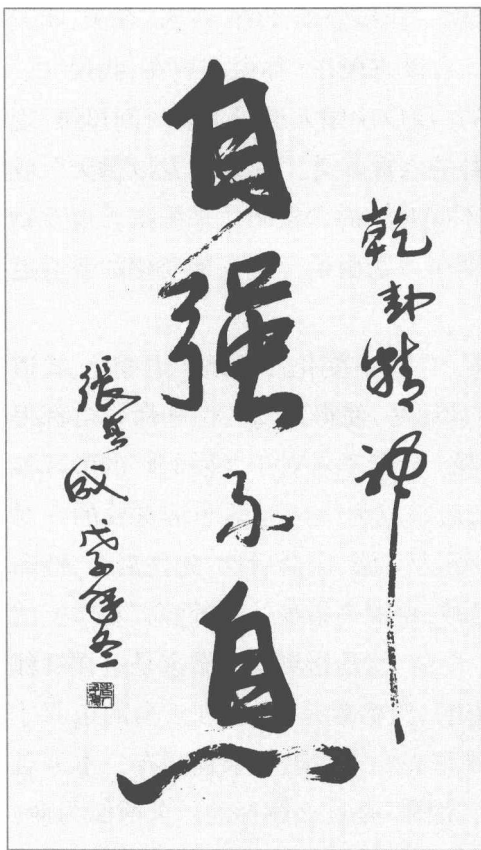 乾卦精神
自强不息
張其成 戊子年冬